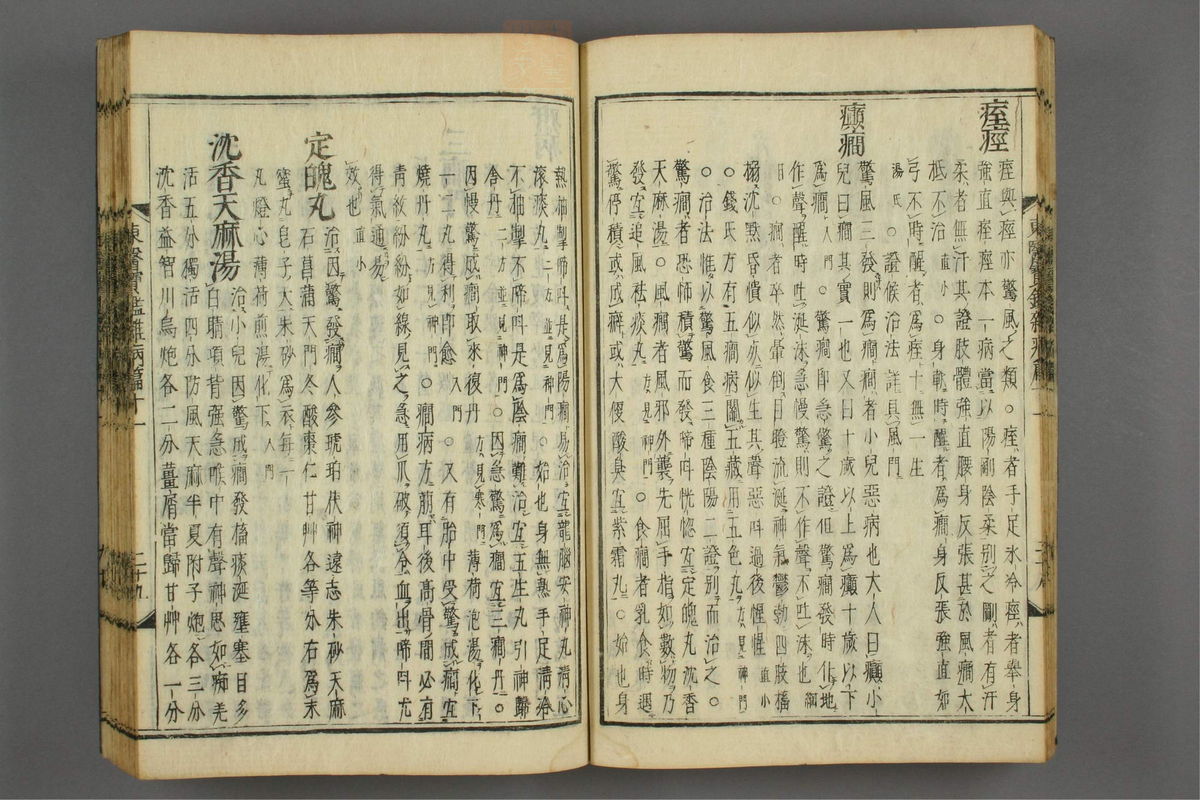 痓痙
痓與痙亦驚風之類○痓者手足氷冷痙者擧身
強直痓痙本一病當以陽剛陰柔別之剛者有汗
柔者無汗其證肢體強直腰身反張甚於風癇大
抵不治直小○身軟時醒者爲癇身反張強直如
弓不時醒者爲痓十無一生
湯氏○證候治法詳具風門
癲癇
驚風三發則爲癇癇者小兒惡病也大人曰癲小
兒曰癇其實一也又曰十歲以上爲癲十歲以下
爲癇入門○驚癇卽急驚之證但驚癇發時仆地
作聲醒時吐涎沫急慢驚則不作聲不吐沫也綱
目○癇者卒然暈倒目瞪流涎神氣鬱勃四肢搐
搦沈默昏憒似死似生其聲惡叫過後惺惺直小
○錢氏方有五癇病關五藏用五色丸方見神門
○治法惟以驚風食三種陰陽二證別而治之○
驚癇者恐怖積驚而發啼叫恍惚宜定魄丸沈香
天麻湯○風癇者風邪外襲先屈手指如數物乃
發宜追風祛痰丸方見神門○食癇者乳食時遇
驚停積或成癖或大便酸臭宜紫霜丸○始也身
熱抽掣啼叫是爲陽癇易治宜龍腦安神丸淸心
滚痰丸二方並見神門○始也身無熱手足淸冷
不抽掣不啼叫是爲陰癇難治宜五生丸引神歸
舍丹二方並見神門○因急驚爲癇宜三癇丹○
因慢驚成癇取來復丹方見寒門薄荷泡湯化下
一二丸得利卽愈入門○又有胎中受驚成癇宜
燒丹丸方見神門○癇病方萠耳後高骨間必有
靑紋紛紛如線見之急用爪破須令血出啼叫尤
得氣通易
效也直小
定魄丸
治因驚發癇人參琥珀茯神遠志朱砂天麻
石菖蒲天門冬酸棗仁甘艸各等分右爲末
蜜丸皂子大朱砂爲衣每一
丸燈心薄荷煎湯化下入門
沈香天麻湯
治小兒因驚成癇發搐痰涎壅塞目多
白睛項背强急喉中有聲神思如痴羌
活五分獨活四分防風天麻半夏附子炮各三分
沈香益智川烏炮各二分薑屑當歸甘艸各一分
東醫寶鑑雜病篇十一
二十九